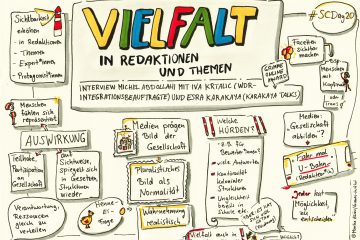 Sichtbarkeit
erhöhen
- in Redaktionen
- Themen
- Expert*innen
- Protagonist*innen
VIELFALT
IN REDAKTIONEN
UND THEMEN
INTERVIEW MICHEL ABDOLLAHI MIT IVA KRTALIC (WDR-
INTEGRATIONSBEAUFTRAGTE) UND ESRA KARAKAYA (KARAKAYA TALKS)
GRIMME
ONLINE
AWARD
#SCDay20
Facetten
sichtbar
machen
Menschen
fühlen sich
repräsentiert
AUSWIRKUNG
Teilhabe,
Partizipation
an
Gesellschaft
auf
Sichtweise,
spiegelt sich
in Gesetzen,
Strukturen
wieder
Verantwortung:
Ressourcen gleich
zu verteilen
Henne-
Ei-
Frage
Medien prägen
Bild der
Gesellschaft
Pluralistisches
Bild als
Normalität
Wahrnehmung
realistisch
Welche
HÜRDEN?
z.B. für
Bewerber*innen?
viele Antworten
Kontinuität
kolonialer
Strukturen
Ungleichheit
Schule etc.
Vielfalt auch in
Medien:
Gesellschaft
abbilden?
U-Bahn-
Möglichkeit,
entscheiden